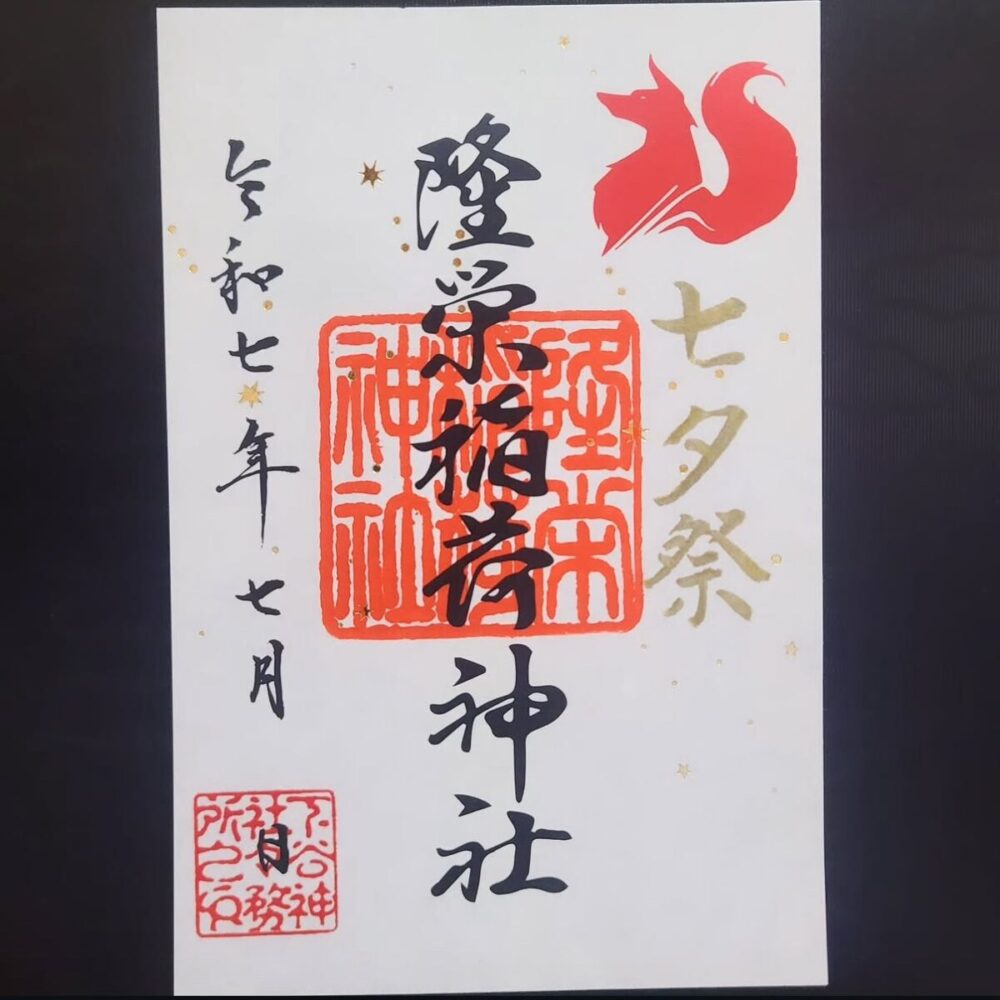 七夕祭
隆栄稲荷神社
隆栄
稲荷
神社
令和七年 七月 日
下谷神
社社務
所之印